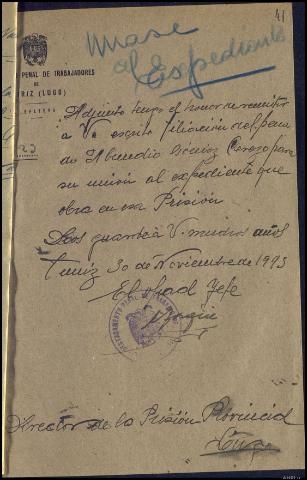 41
Unase
al Expediente
PENAL DE TRABAJADORES
DE
RIZ (LUGO)
Adjunto tengo el honor de remitir
a Vd escrito filiación del pena
do Abundio Gómez Cerezo para
su unión al expediente que
obra en esa Prisión
Dios guarde a V. muchos años
30 de Noviembre de 1943
El Jefe
DESTACAMENTO PENAL DE TRABAJADORES
Director de la Prisión Provincial